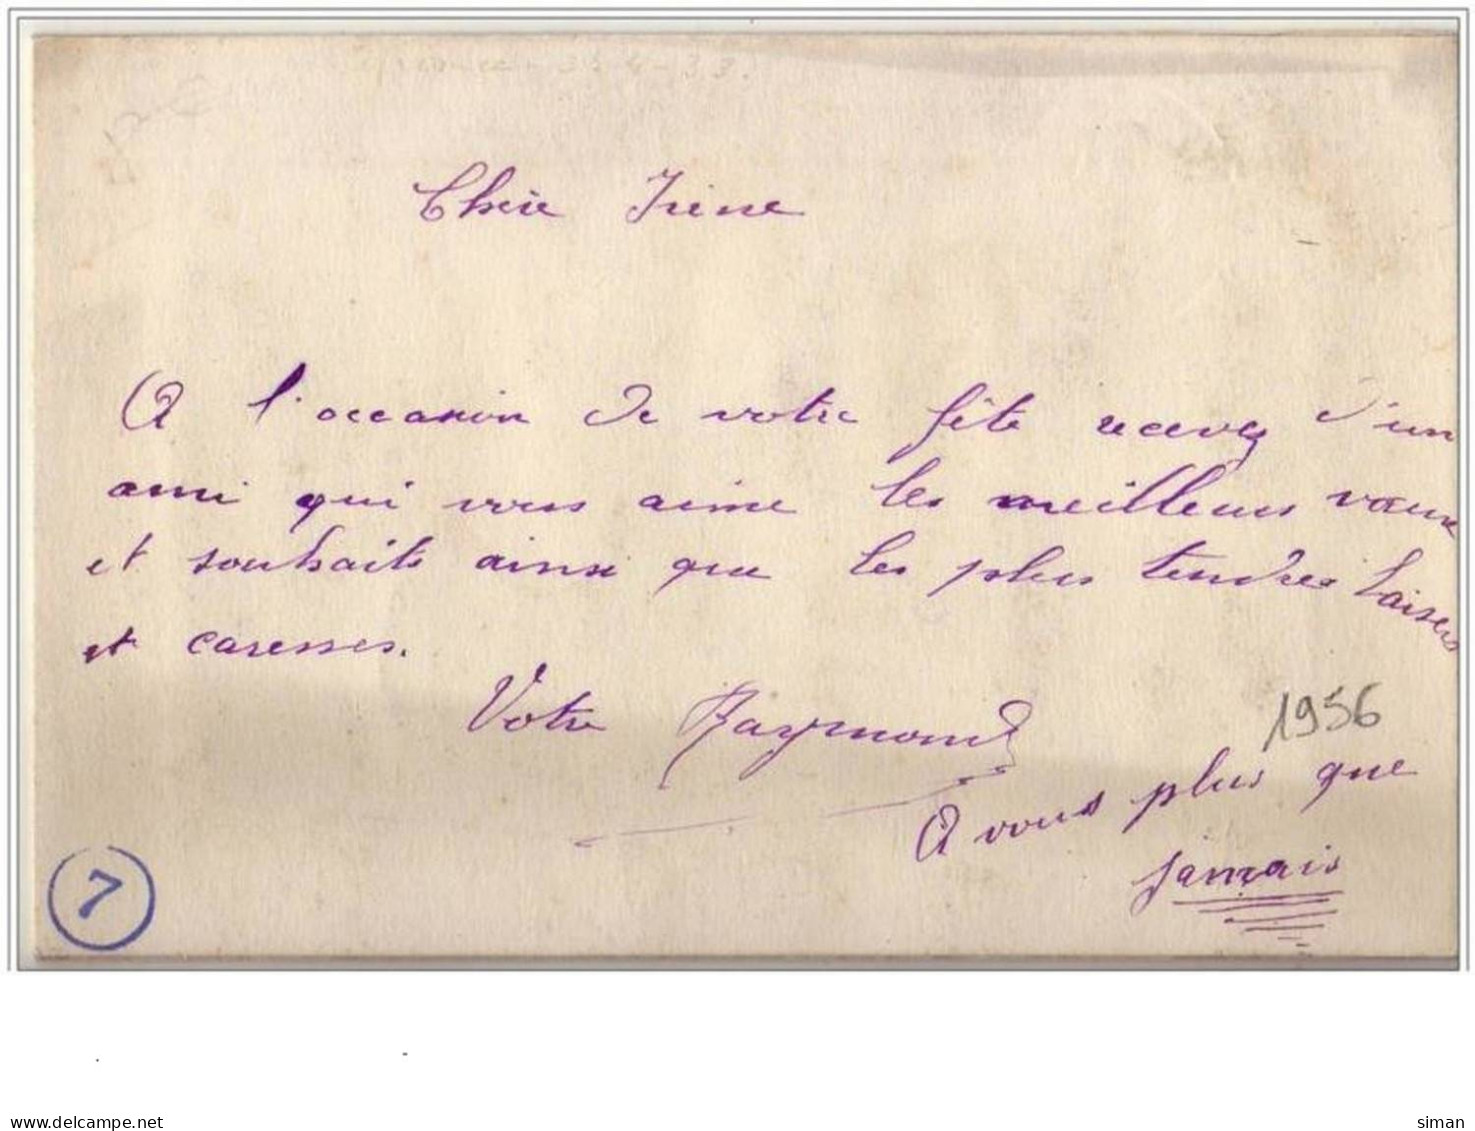 Chère Irène
A l'occasion de votre fête recevez d'un
ami qui vous aime les meilleurs vœux
et souhaits ainsi que les plus tendres baisers
et caresses.
Votre Raymond
1956
A vous plus que
jamais
7
delcampe.net
siman